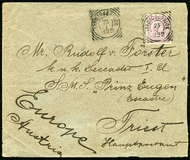 Mr. Rudolf Förster
k.u.k. Seecadet I. Cl.
S.M.S. "Prinz Eugen"
Triest
Hauptpostamt
Europe
Austria